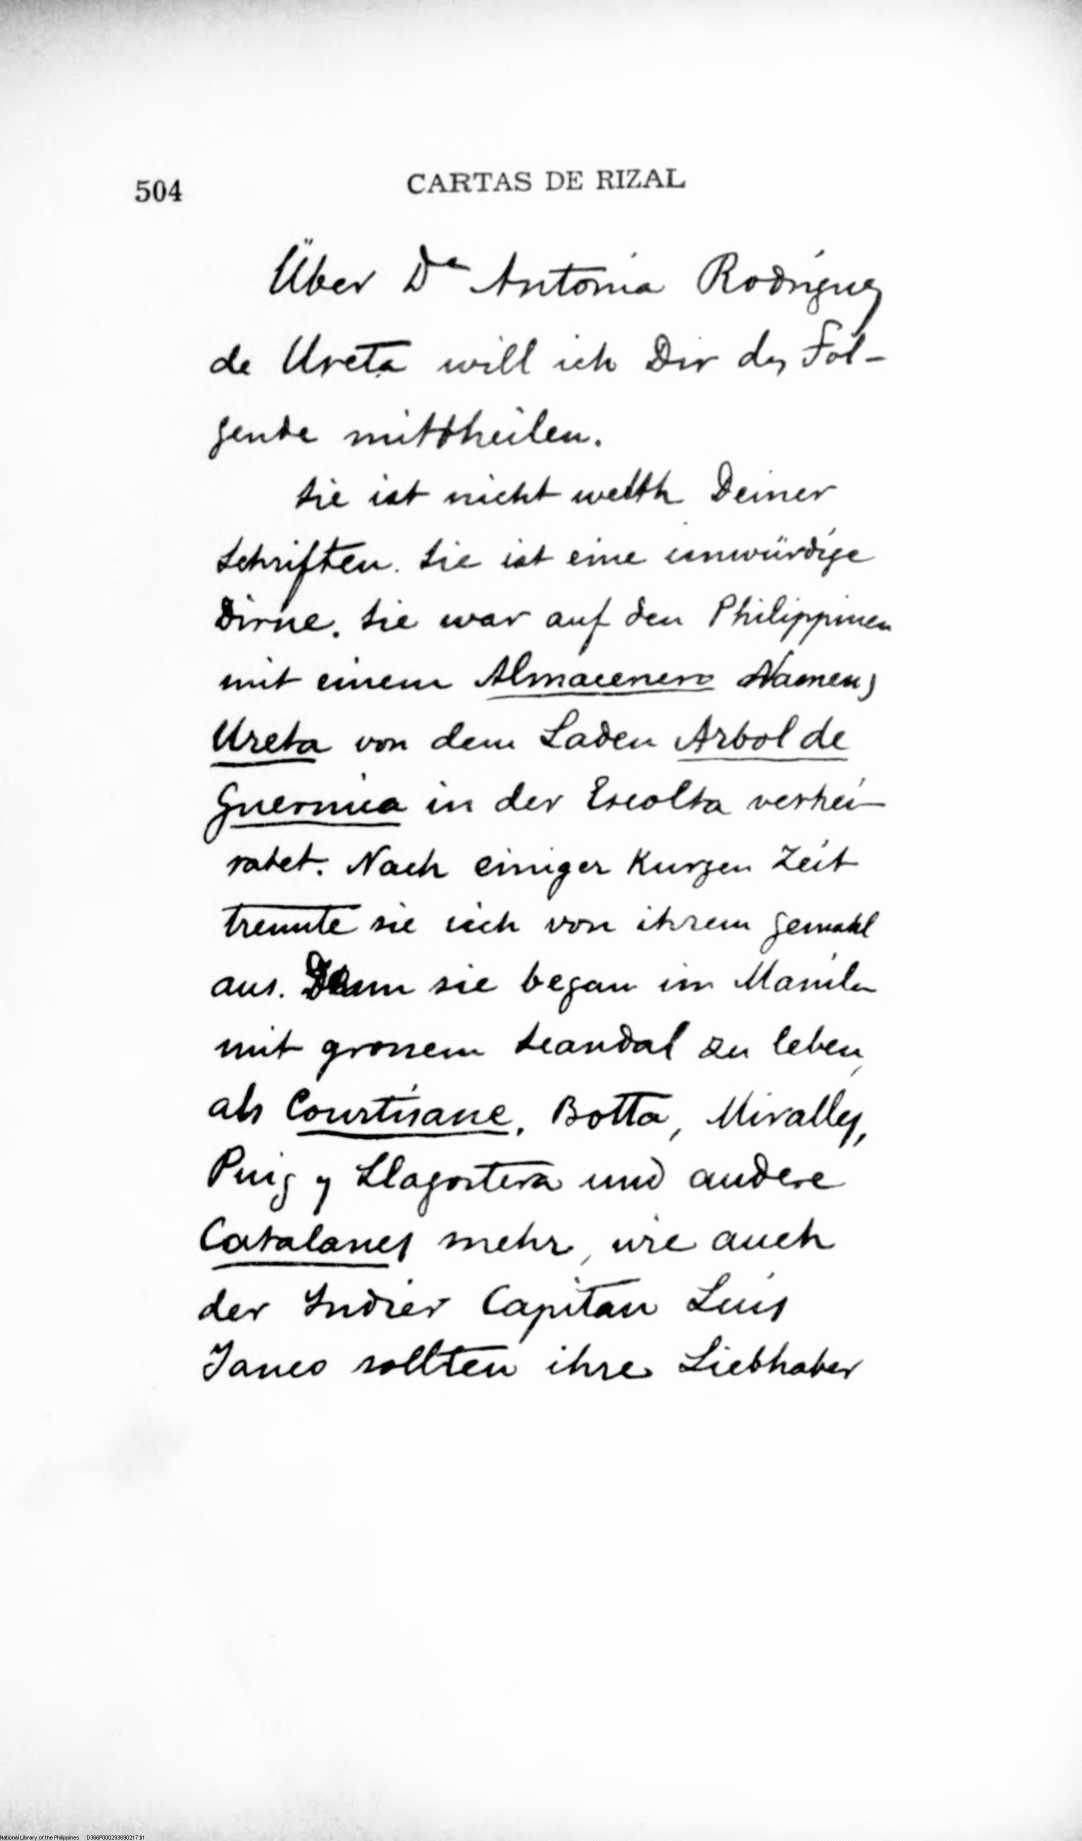 504 CARTAS DE RIZAL
Über Dª Antonia Rodríguez
de Ureta will ich Dir das Fol-
gende mittheilen.
Sie ist nicht werth Deiner
Schriften. Sie ist eine unwürdige
Dirne. Sie war auf den Philippinen
mit einem Almacenero Namens
Ureta von dem Laden Arbol de
Guernica in der Escolta verhei-
ratet. Nach einiger Kurzen Zeit
trennte sie sich von ihrem Gemahl
aus. Denn sie began in Manila
mit grossem Scandal zu leben,
als Courtisane. Botta, Miralles,
Puig y Llagostera und andere
Catalanes mehr, wie auch
der Indier Capitan Luis
Yanco sollten ihre Liebhaber
National Library of the Philippines